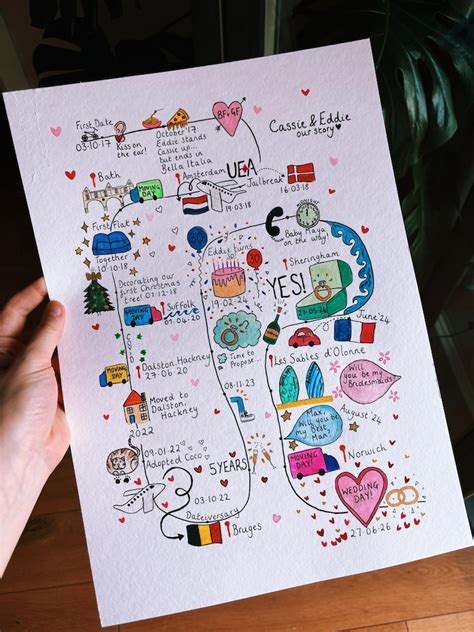 Cassie & Eddie
our story
First Date
03·10·17
Kiss on
the ear!
October '17.
Eddie stands
Cassie up...
but ends in
Bella Italia
BF & GF
UEA
Bath
MOVING
DAY
Amsterdam
19·03·18
Jailbreak
16·03·18
First Flat
Together
10·10·18
Decorating our
first Christmas
tree! 01·12·18
Eddie turns
30
19·02·24
Baby Maya
on the way!
Sheringham
YES!
27·05·24
Suffolk
MOVING
DAY
01·04·20
Time to
Propose...
June '24
Les Sables d'Olonne
Dalston, Hackney
27·06·20
Moved to
Dalston,
Hackney
2022
08·11·23
Will you
be my
Bridesmaids?
August '24
Max,
Will you be
my Best
Man?
09·01·22
Adopted CoCo
5 YEARS
03·10·22
Dateiversary
Bruges
MOVING
DAY!
Norwich
WEDDING
DAY!
27·06·26